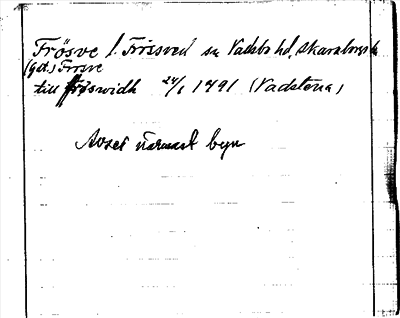 Frösve l. Frösved sn Vadsbo hd, Skaraborgs l.
(Get.) Frösve
till Fröswidh 24/1 1491 (Vadstena)
Avser närmast byn